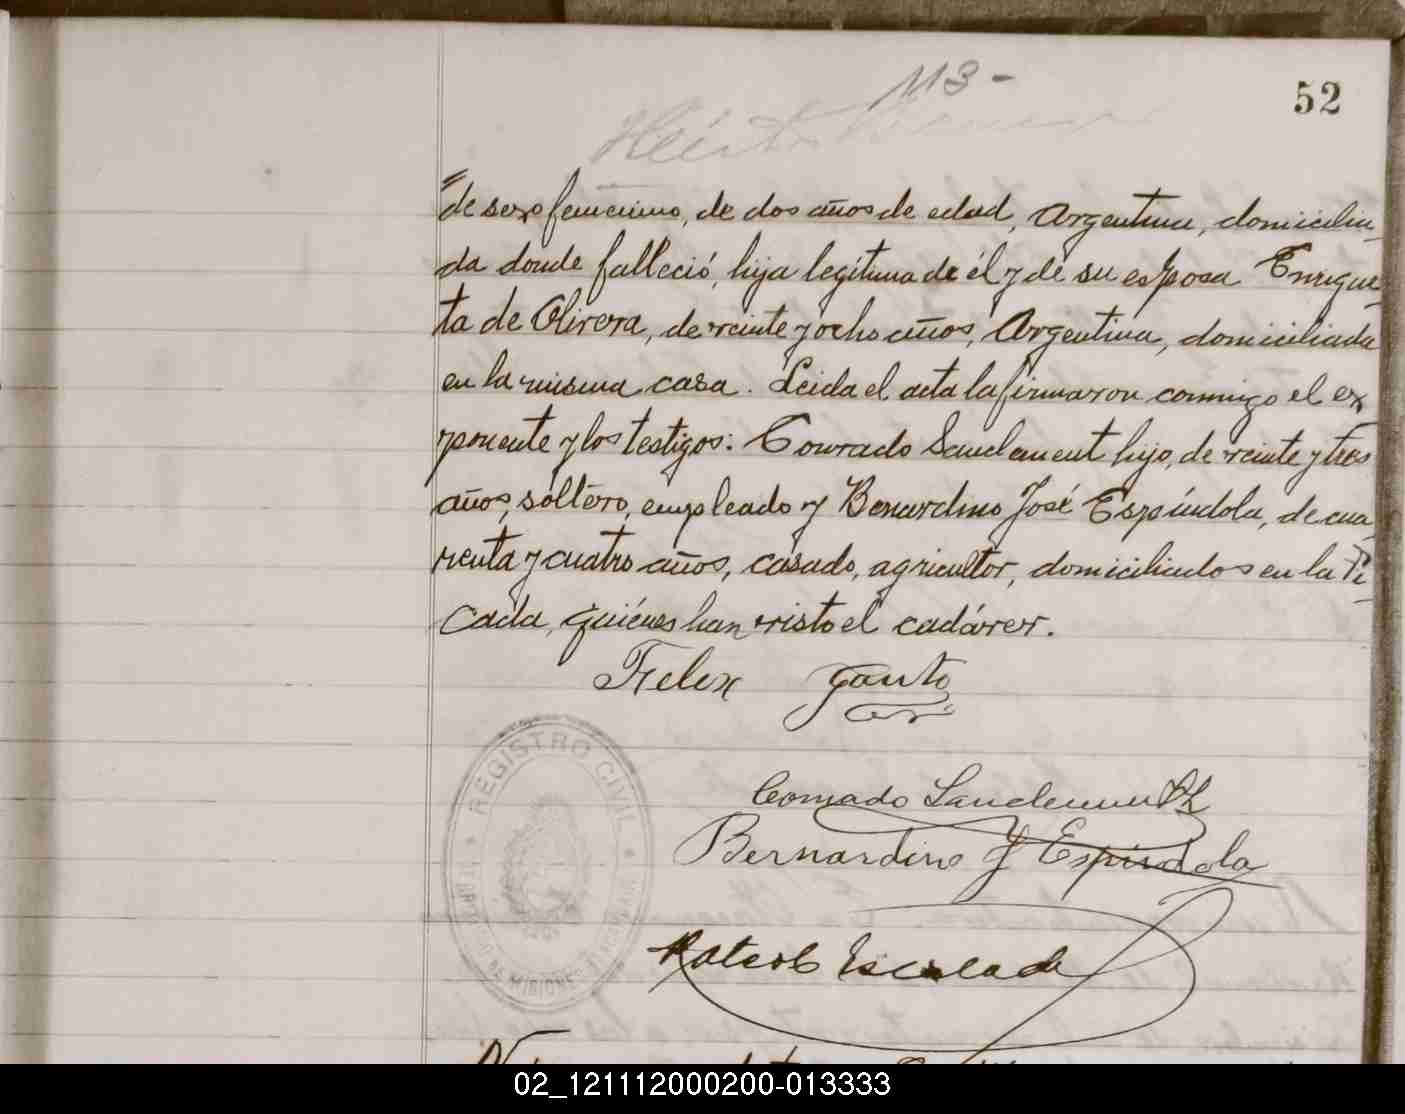 113-
52
Héctor
de sexo femenino, de dos años de edad, Argentina, domicilia-
da donde falleció, hija legítima de él y de su esposa Enrique-
ta de Olivera, de veinte y ocho años, Argentina, domiciliada
en la misma casa. Leida el acta la firmaron conmigo el ex-
ponente y los testigos: Conrado Sandament hijo, de veinte y tres
años, soltero, empleado y Bernardino José Espíndola, de cua-
renta y cuatro años, casado, agricultor, domiciliados en la Pi-
cada, quiénes han visto el cadáver.
Felix
Conrado
Bernardino J Espindola
Mateo Escalada
REGISTRO CIVIL
DE MISIONES
02_121112000200-013333